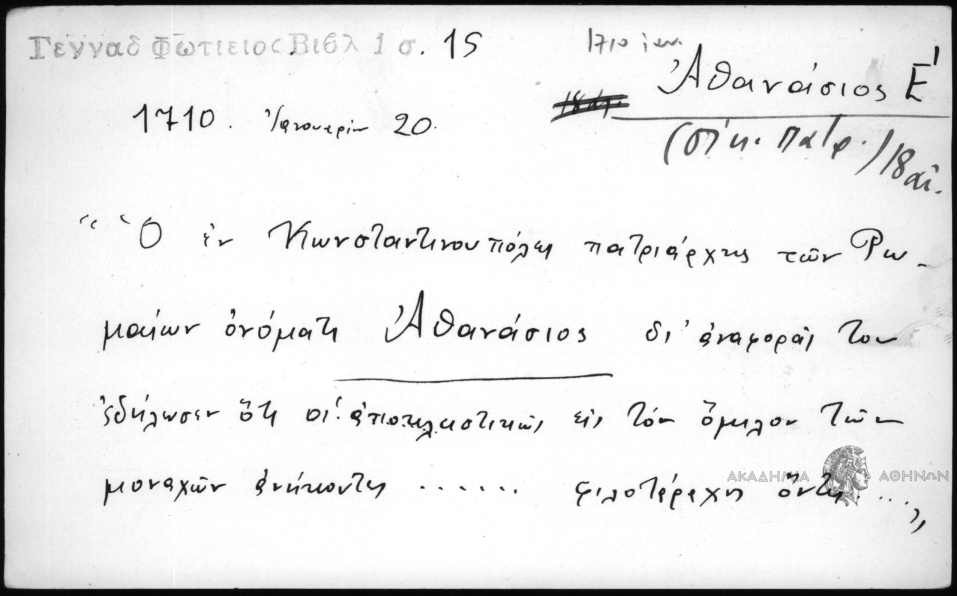 Γενναδ Φωτιειος Βιβλ 1 σ. 15
1710 ιαν.
Ἀθανάσιος Ε'
1710. Ἰανουαρίου 20.
(Οἰκ. Πατρ.) 18 αἰ.
“Ὁ ἐν Κωνσταντινουπόλει πατριάρχης τῶν Ρω-
μαίων ὀνόματι Ἀθανάσιος δι' ἀναφορᾶς του
ἐδήλωσεν ὅτι οἱ ἀποκλειστικῶς εἰς τόν ὅμιλον τῶν
μοναχῶν ἀνήκοντες ...... φιλοτάραχοι ὄντες ...,,
ΑΚΑΔΗΜΙΑ ΑΘΗΝΩΝ